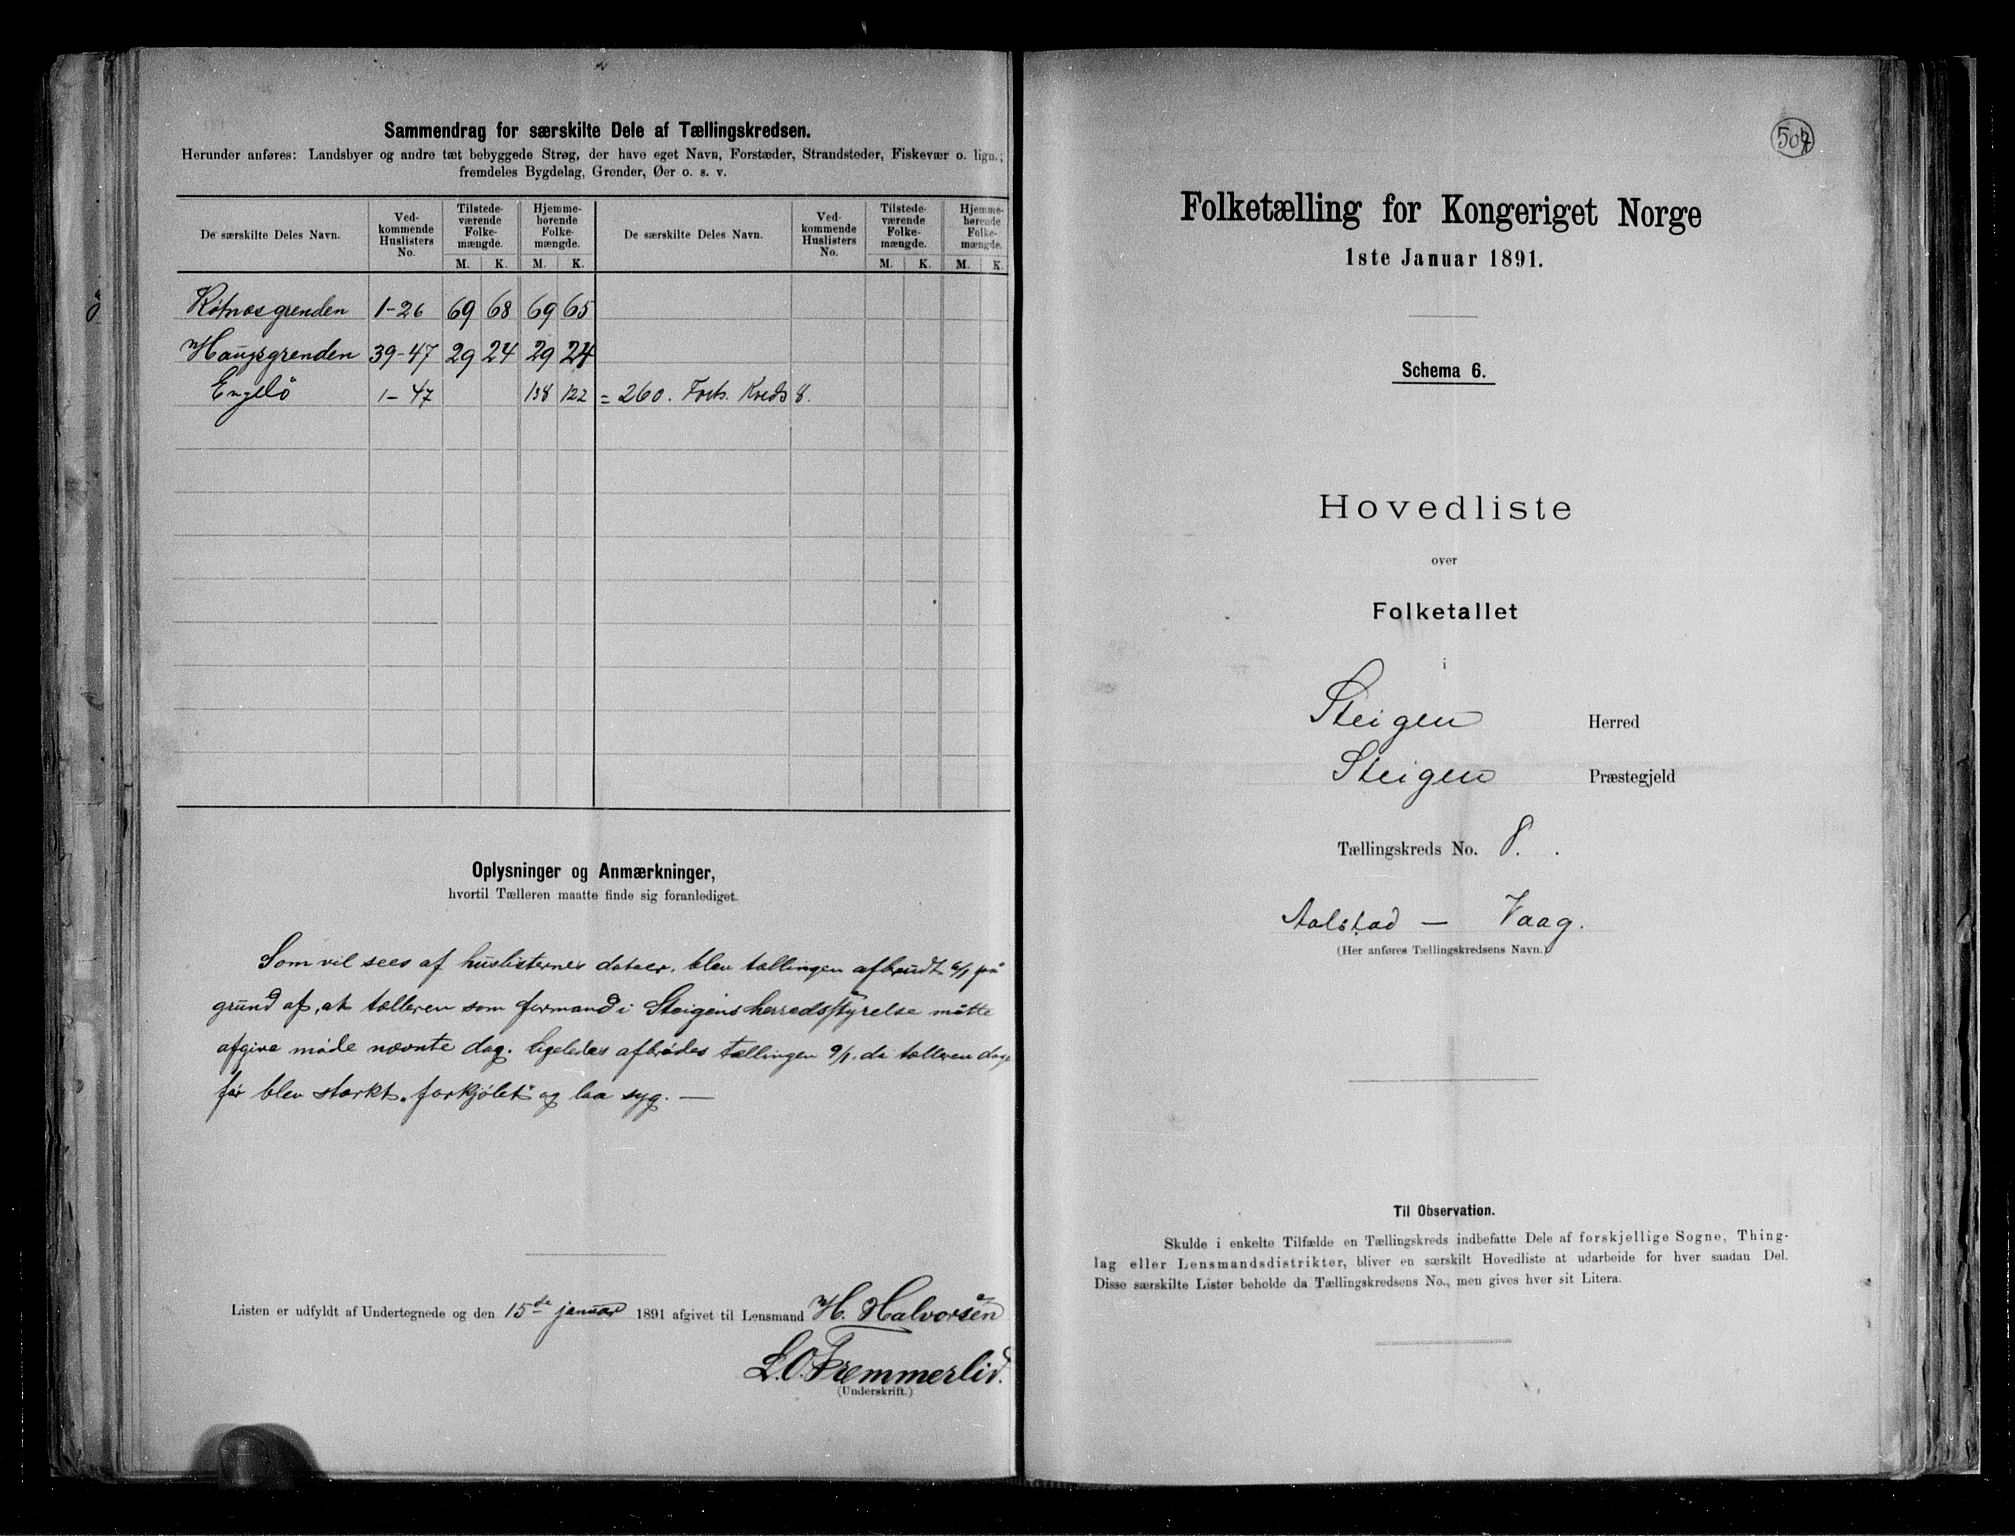 Sammendrag for særskilte Dele af Tællingskredsen.
Herunder anføres: Landsbyer og andre tæt bebyggede Strøg, der have eget Navn, Forstæder, Strandsteder, Fiskevær o. lign.;
fremdeles Bygdelag, Grender, Øer o. s. v.
De særskilte Deles Navn. Ved-kommende Huslisters No. Tilstede-værende Folke-mængde. Hjemme-hørende Folke-mængde. De særskilte Deles Navn. Ved-kommende Huslisters No. Tilstede-værende Folke-mængde. Hjemme-hørende Folke-mængde.
M. K. M. K. M. K. M. K.
Røtnæsgrenden 1-26 69 68 69 65
Haugsgrenden 39-47 29 24 29 24
Engelø 1-47 138 122 = 260. Forts. Kreds 8.
Oplysninger og Anmærkninger,
hvortil Tælleren maatte finde sig foranlediget.
Som vil sees af huslisternes datoer, blev tællingen afbrudt 6/1 på
grund af, at tælleren som formand i Steigens herredsstyrelse måtte
afgive møde nævnte dag. Ligeledes afbrødes tællingen 9/1, da tælleren dage
før blev stærkt "forkjølet" og laa syg. —
Listen er udfyldt af Undertegnede og den 15de januar 1891 afgivet til Lensmand H. Halvorsen
L. O. Fremmerlid.
(Underskrift.)
507
Folketælling for Kongeriget Norge
1ste Januar 1891.
Schema 6.
Hovedliste
over
Folketallet
i
Steigen Herred
Steigen Præstegjeld
Tællingskreds No. 8.
Aalstad — Vaag.
(Her anføres Tællingskredsens Navn.)
Til Observation.
Skulde i enkelte Tilfælde en Tællingskreds indbefatte Dele af forskjellige Sogne, Thing-
lag eller Lensmandsdistrikter, bliver en særskilt Hovedliste at udarbeide for hver saadan Del.
Disse særskilte Lister beholde da Tællingskredsens No., men gives hver sit Litera.